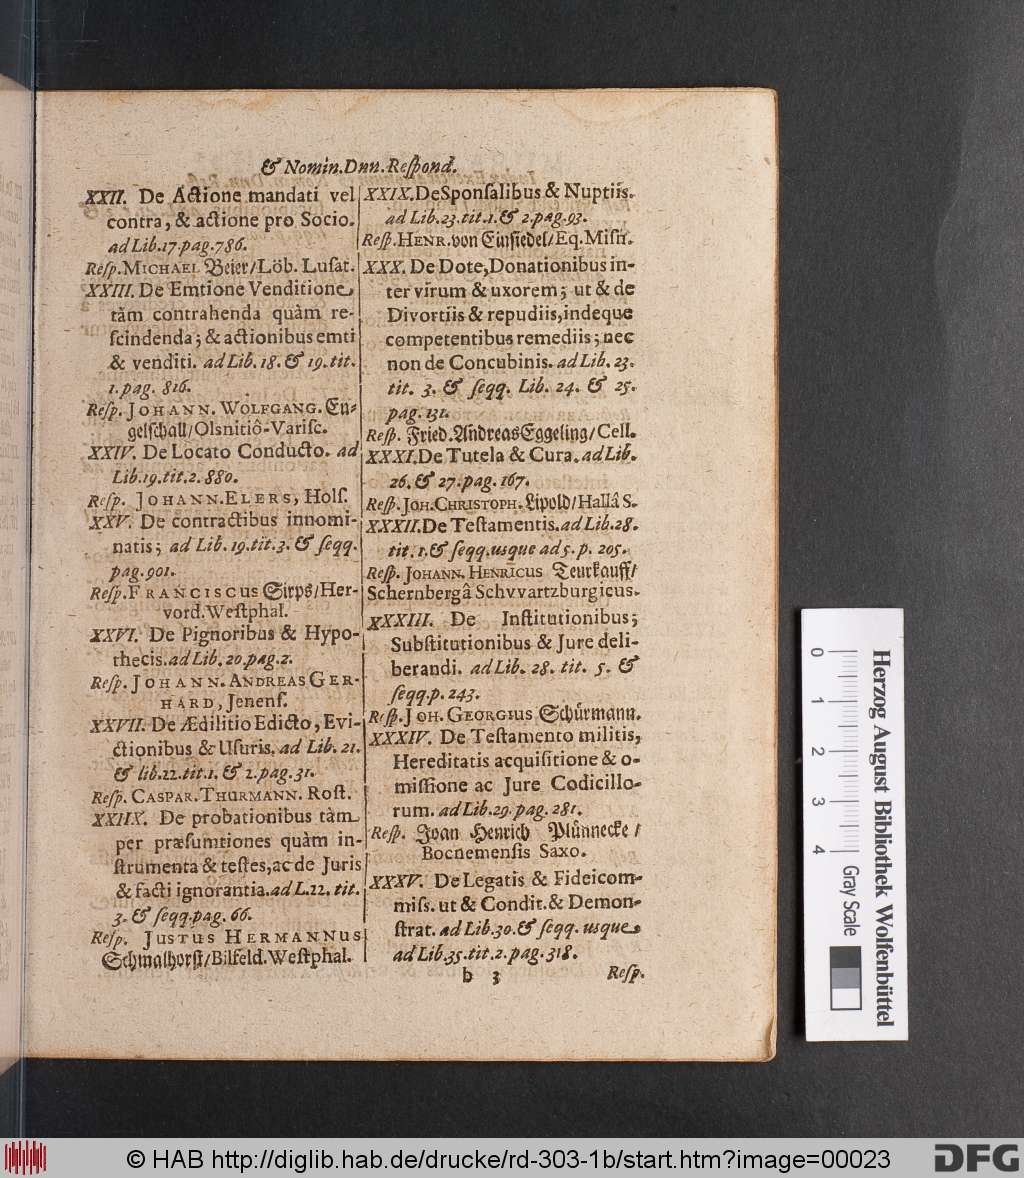 & Nomin. Dnn. Reſpond.
XXII. De Actione mandati vel
contra, & actione pro Socio.
ad Lib. 17. pag. 786.
Reſp. MICHAEL Beier/ Löb. Luſat.
XXIII. De Emtione Venditione,
tàm contrahenda quàm re-
ſcindenda; & actionibus emti
& venditi. ad Lib. 18. & 19. tit.
1. pag. 816.
Reſp. JOHANN. WOLFGANG. En-
gelſchall/ Olsnitiô-Variſc.
XXIV. De Locato Conducto. ad
Lib. 19. tit. 2. 880.
Reſp. JOHANN. ELERS, Holſ.
XXV. De contractibus innomi-
natis; ad Lib. 19. tit. 3. & ſeqq.
pag. 901.
Reſp. FRANCISCUS Sirps/ Her-
vord. Weſtphal.
XXVI. De Pignoribus & Hypo-
thecis. ad Lib. 20. pag. 2.
Reſp. JOHANN. ANDREAS GER-
HARD, Jenenſ.
XXVII. De Ædilitio Edicto, Evi-
ctionibus & Uſuris. ad Lib. 21.
& lib. 22. tit. 1. & 2. pag. 31.
Reſp. CASPAR. THURMANN. Roſt.
XXIIX. De probationibus tàm
per præſumtiones quàm in-
ſtrumenta & teſtes, ac de Juris
& facti ignorantia. ad L. 22. tit.
3. & ſeqq. pag. 66.
Reſp. JUSTUS HERMANNUS
Schmalhorſt/ Bilfeld. Weſtphal.
XXIX. De Sponſalibus & Nuptiis.
ad Lib. 23. tit. 1. & 2. pag. 93.
Reſp. HENR. von Einſiedel/ Eq. Miſn.
XXX. De Dote, Donationibus in-
ter virum & uxorem; ut & de
Divortiis & repudiis, indeque
competentibus remediis; nec
non de Concubinis. ad Lib. 23.
tit. 3. & ſeqq. Lib. 24. & 25.
pag. 131.
Reſp. Fried. Andreas Eggeling/ Cell.
XXXI. De Tutela & Cura. ad Lib.
26. & 27. pag. 167.
Reſp. JOH. CHRISTOPH. Lipold/ Hallâ S.
XXXII. De Teſtamentis. ad Lib. 28.
tit. 1. & ſeqq. usque ad 5. p. 205.
Reſp. JOHANN. HENRICUS Teurkauff/
Schernbergâ Schvvartzburgicus.
XXXIII. De Inſtitutionibus;
Subſtitutionibus & Jure deli-
berandi. ad Lib. 28. tit. 5. &
ſeqq. p. 243.
Reſp. JOH. GEORGIUS Schürmann.
XXXIV. De Teſtamento militis,
Hereditatis acquiſitione & o-
miſſione ac Jure Codicillo-
rum. ad Lib. 29. pag. 281.
Reſp. Joan Henrich Plünnecke /
Bocnemenſis Saxo.
XXXV. De Legatis & Fideicom-
miſſ. ut & Condit. & Demon-
ſtrat. ad Lib. 30. & ſeqq. usque
ad Lib. 35. tit. 2. pag. 318.
b 3
Reſp.
Herzog August Bibliothek Wolfenbüttel
0 1 2 3 4
Gray Scale
© HAB http://diglib.hab.de/drucke/rd-303-1b/start.htm?image=00023
DFG